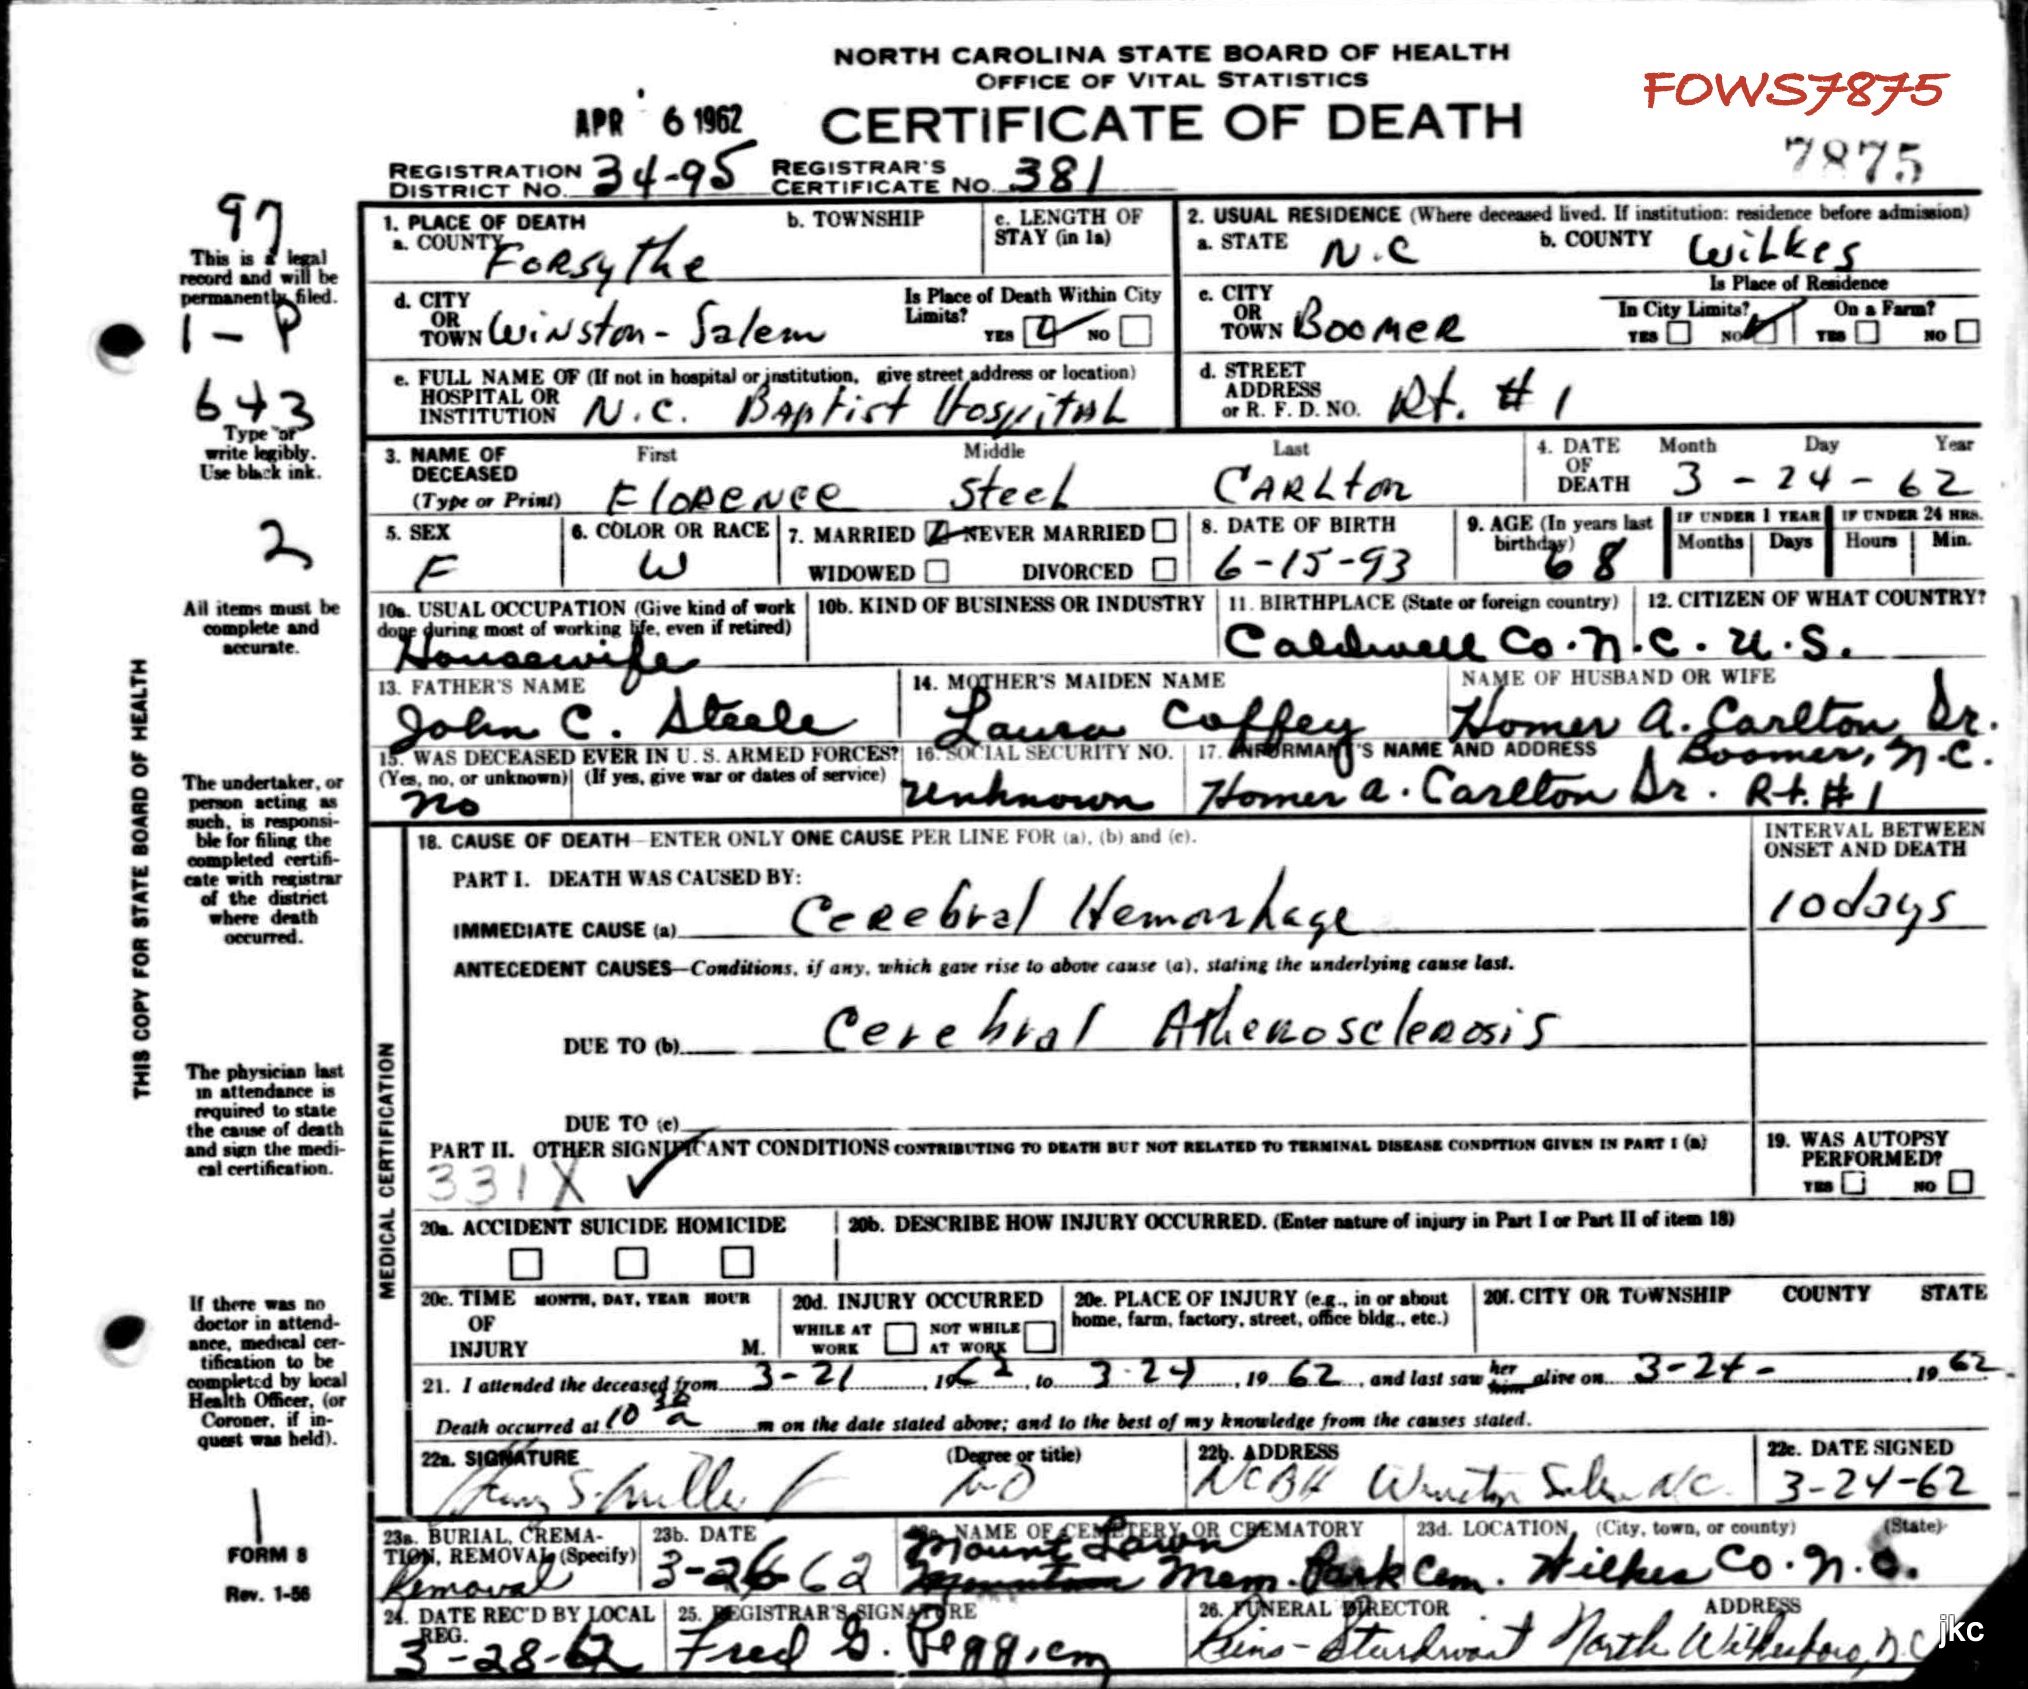 NORTH CAROLINA STATE BOARD OF HEALTH
OFFICE OF VITAL STATISTICS
FOWS7875
APR 6 1962 CERTIFICATE OF DEATH
7875
REGISTRATION DISTRICT NO. 34-95 REGISTRAR'S CERTIFICATE NO. 381
97
This is a legal
record and will be
permanently filed.
1-P
643
Type or
write legibly.
Use black ink.
2
All items must be
complete and
accurate.
THIS COPY FOR STATE BOARD OF HEALTH
The undertaker, or
person acting as
such, is responsi-
ble for filing the
completed certifi-
cate with registrar
of the district
where death
occurred.
The physician last
in attendance is
required to state
the cause of death
and sign the medi-
cal certification.
If there was no
doctor in attend-
ance, medical cer-
tification to be
completed by local
Health Officer, (or
Coroner, if in-
quest was held).
1
FORM 8
Rev. 1-56
1. PLACE OF DEATH
a. COUNTY Forsythe
b. TOWNSHIP
c. LENGTH OF STAY (in 1a)
2. USUAL RESIDENCE (Where deceased lived. If institution: residence before admission)
a. STATE N.C b. COUNTY Wilkes
d. CITY OR TOWN Winston-Salem
Is Place of Death Within City Limits? YES NO
c. CITY OR TOWN Boomer
Is Place of Residence
In City Limits? YES NO On a Farm? YES NO
e. FULL NAME OF (If not in hospital or institution, give street address or location)
HOSPITAL OR INSTITUTION N.C. Baptist Hospital
d. STREET ADDRESS or R. F. D. NO. Rt. #1
3. NAME OF DECEASED (Type or Print)
First Middle Last
Florence Steel Carlton
4. DATE OF DEATH Month Day Year
3-24-62
5. SEX F
6. COLOR OR RACE W
7. MARRIED NEVER MARRIED
WIDOWED DIVORCED
8. DATE OF BIRTH 6-15-93
9. AGE (In years last birthday) 68
IF UNDER 1 YEAR Months Days
IF UNDER 24 HRS. Hours Min.
10a. USUAL OCCUPATION (Give kind of work done during most of working life, even if retired)
Housewife
10b. KIND OF BUSINESS OR INDUSTRY
11. BIRTHPLACE (State or foreign country)
Caldwell Co. N.C.
12. CITIZEN OF WHAT COUNTRY?
U.S.
13. FATHER'S NAME
John C. Steele
14. MOTHER'S MAIDEN NAME
Laura Coffey
NAME OF HUSBAND OR WIFE
Homer A. Carlton Sr.
15. WAS DECEASED EVER IN U. S. ARMED FORCES?
(Yes, no, or unknown) (If yes, give war or dates of service)
no
16. SOCIAL SECURITY NO.
unknown
17. INFORMANT'S NAME AND ADDRESS Boomer, N.C.
Homer A. Carlton Sr. Rt. #1
MEDICAL CERTIFICATION
18. CAUSE OF DEATH—ENTER ONLY ONE CAUSE PER LINE FOR (a), (b) and (c).
INTERVAL BETWEEN ONSET AND DEATH
PART I. DEATH WAS CAUSED BY:
IMMEDIATE CAUSE (a) Cerebral Hemorrhage 10 days
ANTECEDENT CAUSES—Conditions, if any, which gave rise to above cause (a), stating the underlying cause last.
DUE TO (b) Cerebral Atherosclerosis
DUE TO (c)
PART II. OTHER SIGNIFICANT CONDITIONS CONTRIBUTING TO DEATH BUT NOT RELATED TO TERMINAL DISEASE CONDITION GIVEN IN PART I (a)
331X
19. WAS AUTOPSY PERFORMED?
YES NO
20a. ACCIDENT SUICIDE HOMICIDE
20b. DESCRIBE HOW INJURY OCCURRED. (Enter nature of injury in Part I or Part II of item 18)
20c. TIME OF INJURY MONTH, DAY, YEAR HOUR M.
20d. INJURY OCCURRED
WHILE AT WORK NOT WHILE AT WORK
20e. PLACE OF INJURY (e.g., in or about home, farm, factory, street, office bldg., etc.)
20f. CITY OR TOWNSHIP COUNTY STATE
21. I attended the deceased from 3-21, 1962, to 3-24, 19 62, and last saw her him alive on 3-24-, 19 62
Death occurred at 10 30 a m on the date stated above; and to the best of my knowledge from the causes stated.
22a. SIGNATURE (Degree or title)
MD
22b. ADDRESS
NCBH Winston Salem N.C.
22c. DATE SIGNED
3-24-62
23a. BURIAL, CREMATION, REMOVAL (Specify)
Removal
23b. DATE
3-26-62
23c. NAME OF CEMETERY OR CREMATORY
Mount Lawn
Mem. Park Cem.
23d. LOCATION (City, town, or county) (State)
Wilkes Co. N.C.
24. DATE REC'D BY LOCAL REG.
3-28-62
25. REGISTRAR'S SIGNATURE
Fred G. Peggiem
26. FUNERAL DIRECTOR ADDRESS
Reins-Sturdivant North Wilkesboro, N.C.
jkc